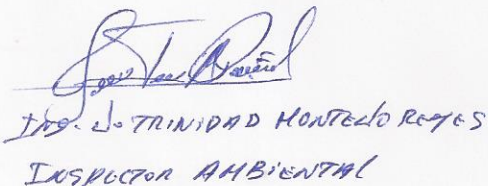 Ing. J. TRINIDAD MONTEJO REYES
INSPECTOR AMBIENTAL